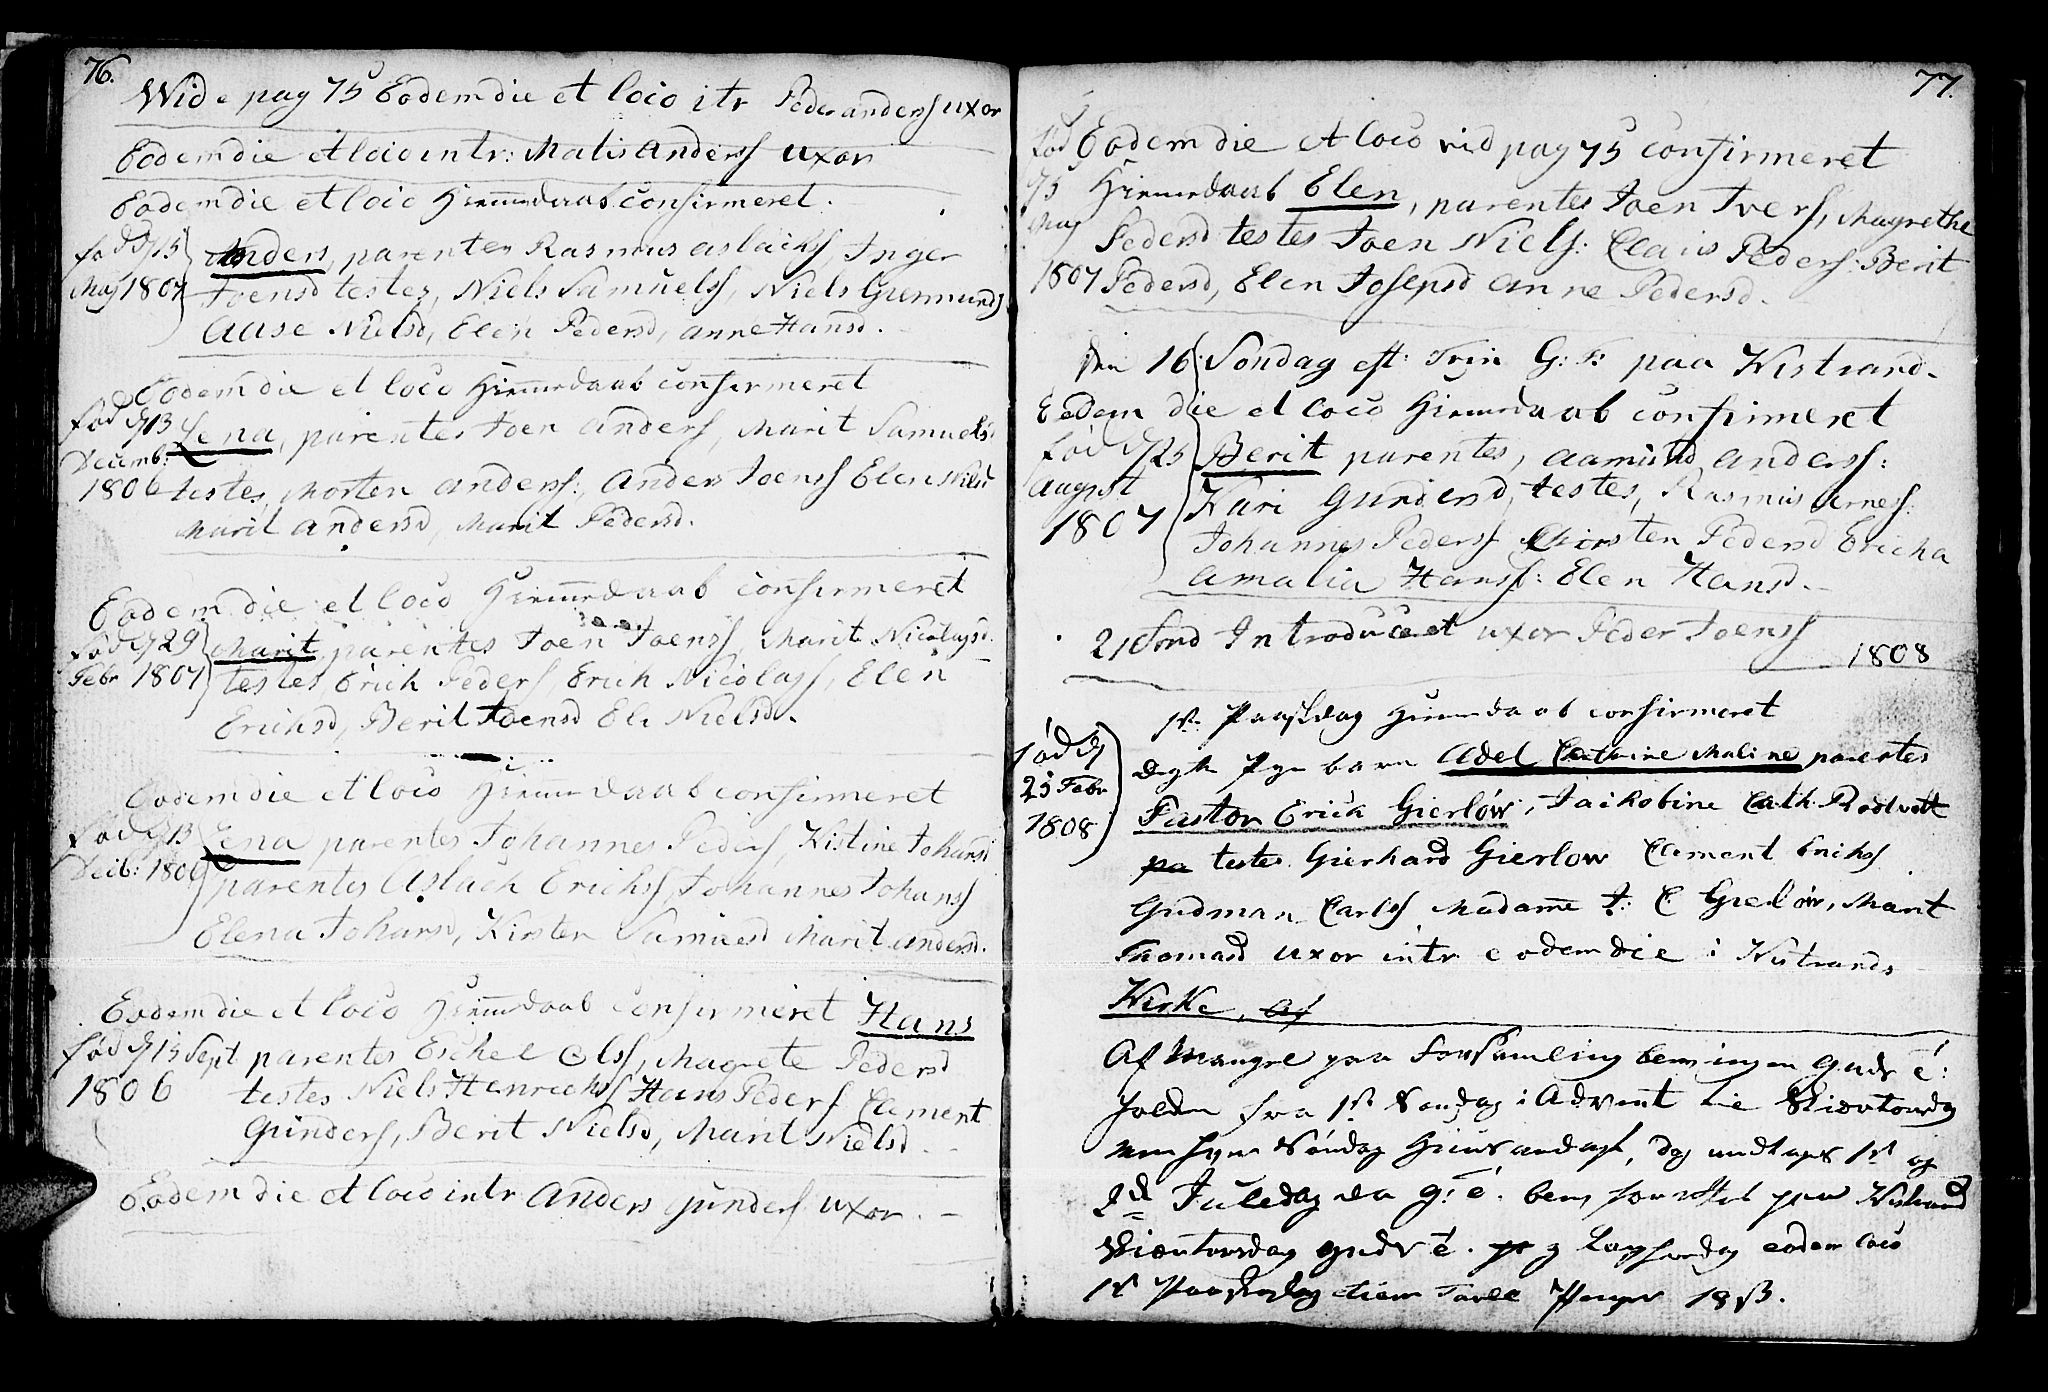 76.
Wide pag 75 Eodem die et loco itr Peder anderss uxor
Eodem die et loco intr: Matis anderss uxor
Eodem die et loco Hiemedaab confirmeret.
fød d 15 Anders, parentes Rasmus aslachs, Inger
Maj 1807 Joensd testes, Niels Samuelss, Niels Gummunds
Aase Nielsd, Elen Pedersd, anne Hansd.
Eodem die et loco Hiemedaab confirmeret
fød d 13 Lena, parentes Joen anders, Marit Samuelsd
Decemb: 1806 testes, Morten anders: Anders Joenss Elen Nielsd
Marit andersd, Marit Pedersd.
Eodem die et loco Hiemedaab confirmeret
fød d 29 Marit, parentes Joen Joenss, Marit Nicolaysd.
Febr 1807 testes Erich Peders, Erich Nicolayss, Elen
Erichsd, Berit Joensd Ele Nielsd.
Eodem die et loco Hiemedaab confirmeret
fød d 13 Lena parentes Johannes Peders Kistine Johansd
Decb: 1806 parentes Aslach Erichss, Johannes Johanss
Elena Johansd, Kirsten Samuesd Marit andersd.
Eodem die et loco Hiemedaab confirmeret Hans
fød d 15 Sept parentes Eichel Olss, Magrete Pedersd
1806 testes Niels Henrichss Hans Peders Clement
Gunders, Berit Nielsd, Marit Nielsd.
Eodem die et loco intr Anders gunders uxor.
77.
fød Eodem die et loco vid pag 75 confirmeret
Hiemedaab Elen, parentes Joen Ivers, Magrethe
Maj Pedersd testes Joen Niels: Clais Peders: Berit
1807 Pedersd, Elen Josepsd anne Pedersd.
Den 16 Søndag eft: Trin G: T: paa Kistrand.
Eodem die et loco Hiemedaab confirmeret
fød d 25 Berit parentes, aamund anderss:
August Kari Gundersd, testes, Rasmus arnes:
1807 Johannes Peders Chirsten Pedersd Ericha
amalia Hanss: Elen Hansd.
21 Sond Introduceret uxor Peder Joenss
1808
1ste Paaskedag Hiemedaab confirmeret
fød d barn Adel Cathrine Maline parentes
25 Febr Pastor Erich Gierløw, Jaikobine Cath: Rodvett
1808 pa testes Gierhard Gierlow Clement Erichs
Gudman Carlss Madame J: C Gierløw, Marit
Thomasd uxor intr eodem die i Kistrands
Kirke, af
Af Mangel paa Forsamling ingen
fra 1ste Søndag i Advent
Søndag undtagen 1st og
2d Juledag da g: è. paa Kistrand
eodem loco
1st Paaskedag